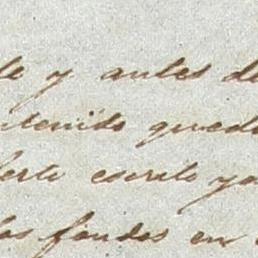 te y antes de
ntenido queda
erte escrito y a
los fondos en